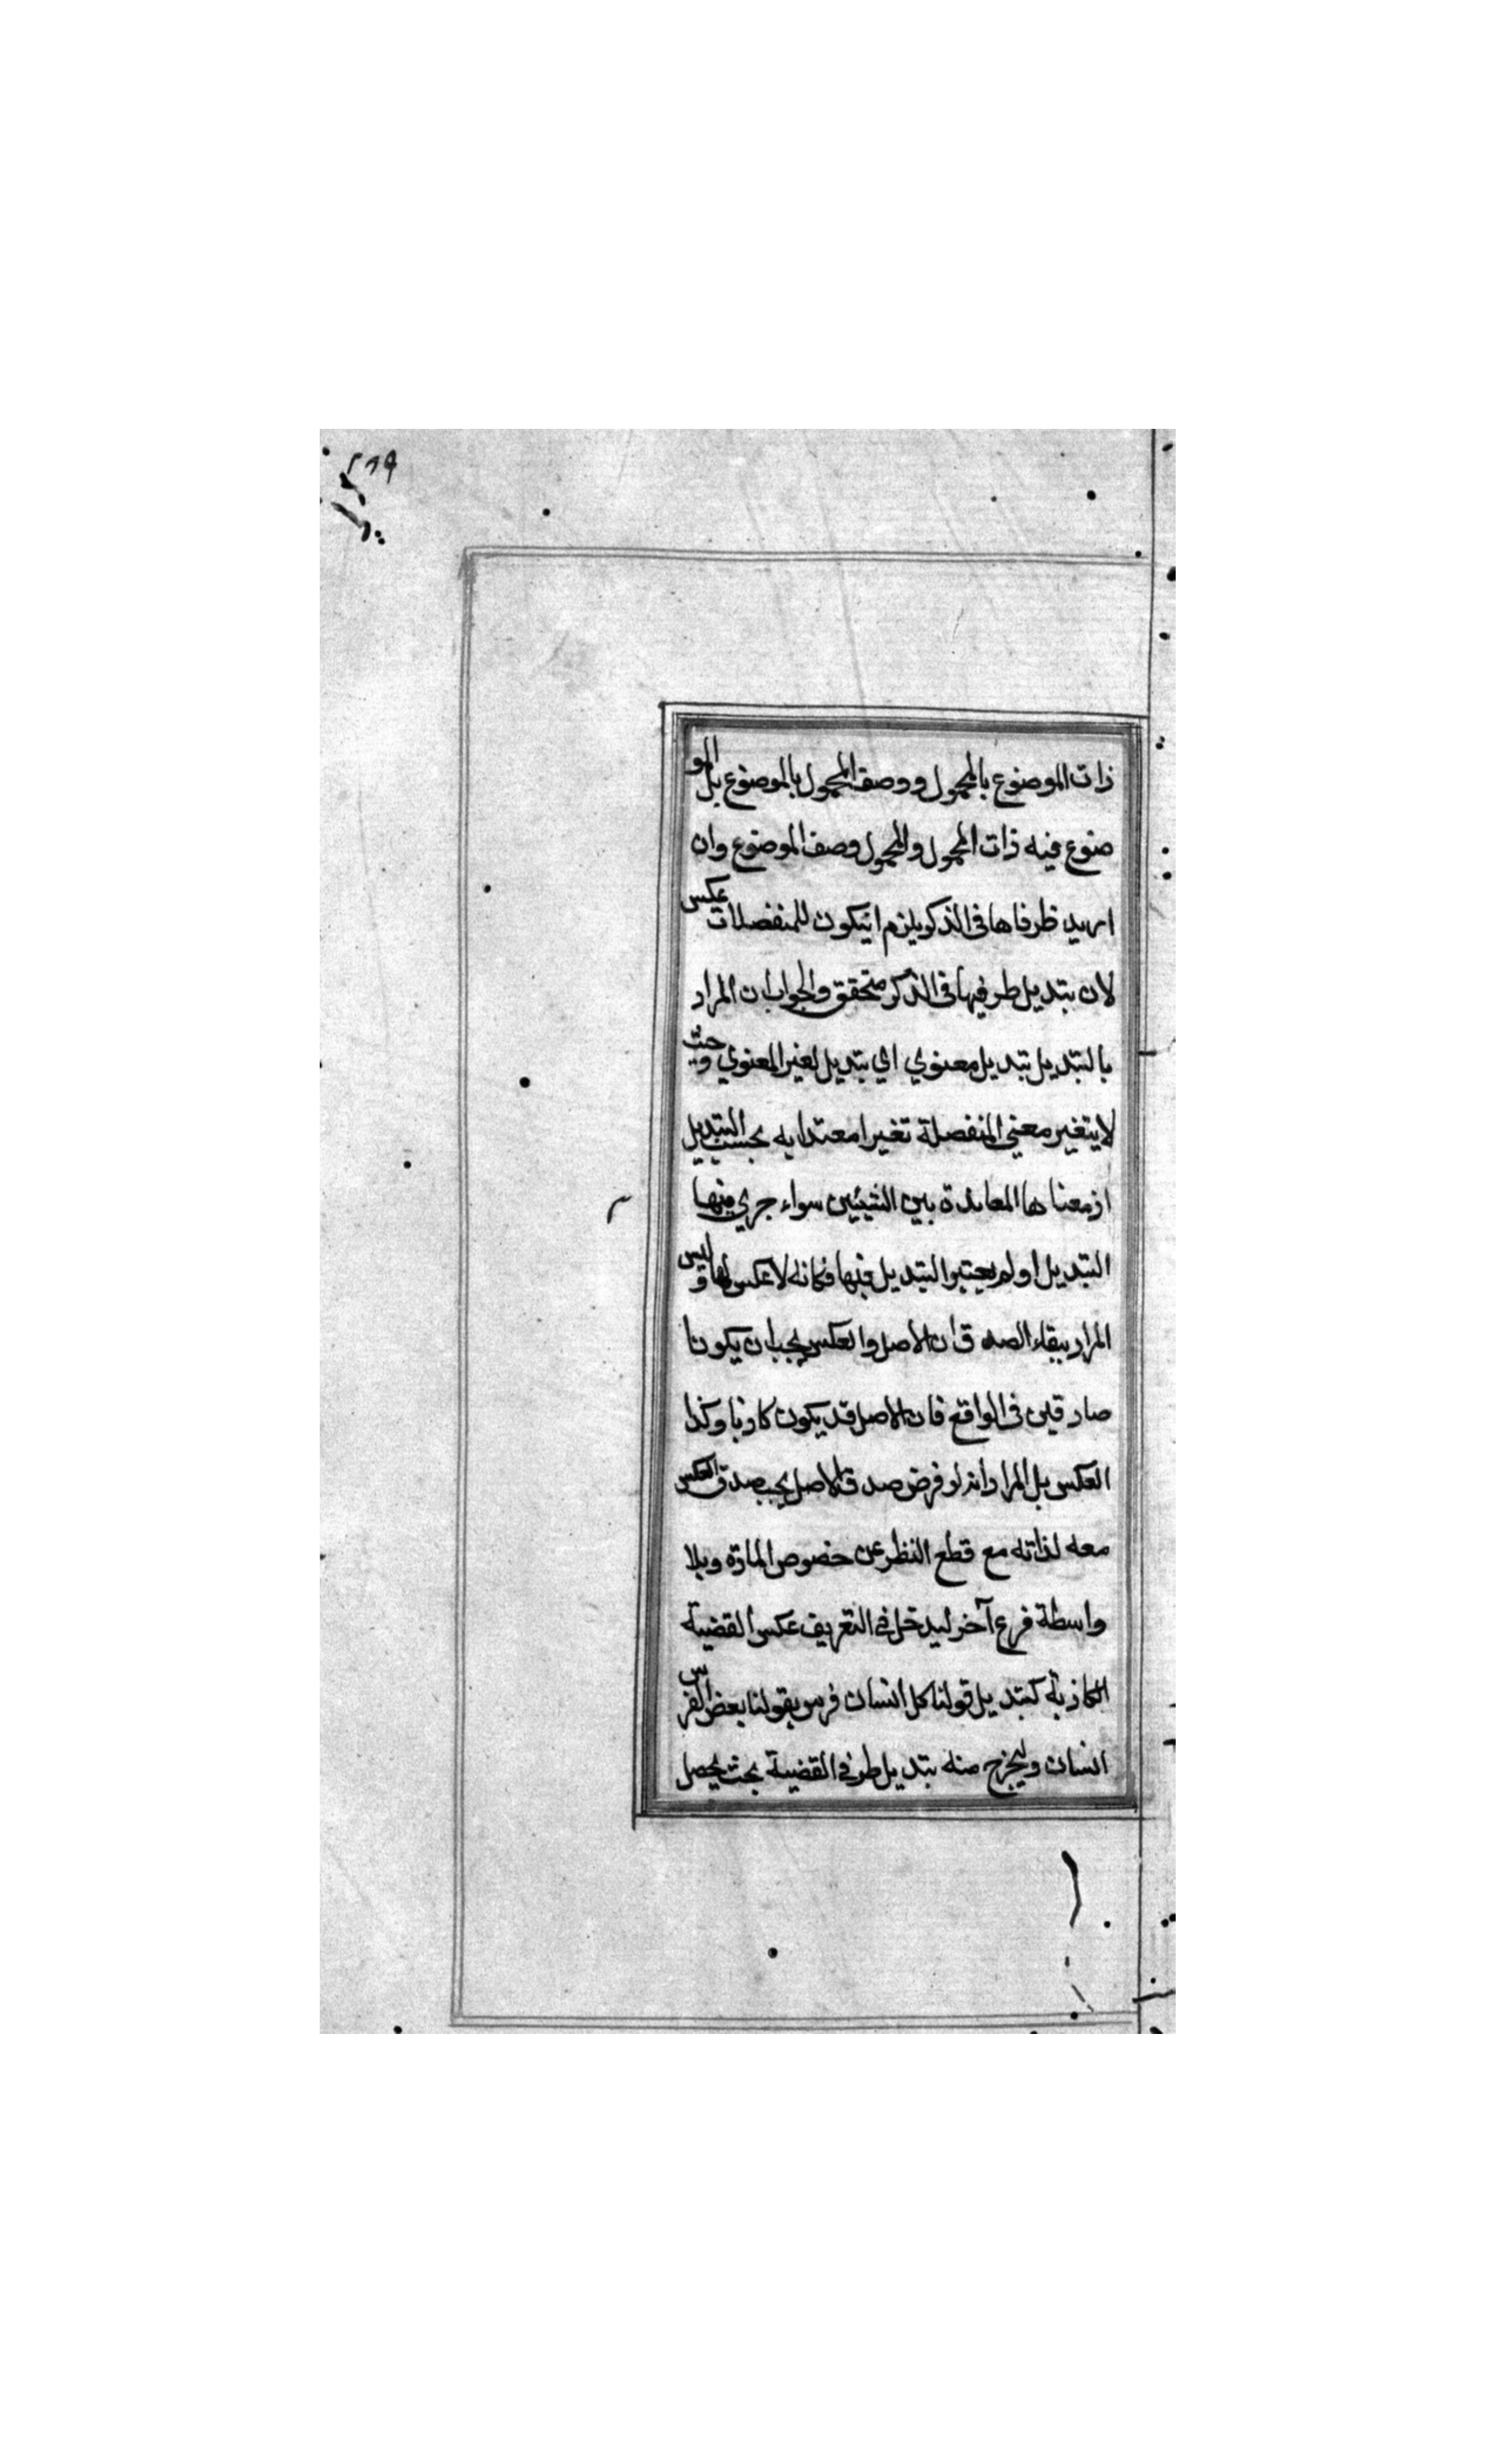 ٢٦٩
ذات الموضوع بالمحمول ووصف المحمول بالموضوع بل المو
ضوع فيه ذات المحمول والمحمول وصف الموضوع وان
اريد طرفاها فى الذكر يلزم انيكون للمنفصلات عكس
لان بتديل طرفيها فى الذكر متحقق والجواب ان المراد
بالتبديل تبديل معنوي اي بتديل لغير المعنوي وحيث
لايتغير معني المنفصلة تغيرا معتدا به بحسب التبديل
اذ معناها المعاندة بين الشيئين سواء جري فيها
التبديل او لم يعتبروا التبديل فيها فكانه لا عكس لها وليس
المراد ببقاء الصدق ان الاصل والعكس يجب ان يكونا
صادقين فى الواقع فان الاصل قد يكون كاذبا وكذا
العكس بل المراد انه لو فرض صدق الاصل يجب صدق العكس
معه لذاته مع قطع النظر عن خصوص المادة وبلا
واسطة فرع آخر ليدخل فى التعريف عكس القضية
الكاذبة كتبديل قولنا كل انسان فرس بقولنا بعض الفرس
انسان وليخرج منه بتديل طرفى القضية بحيث يحصل